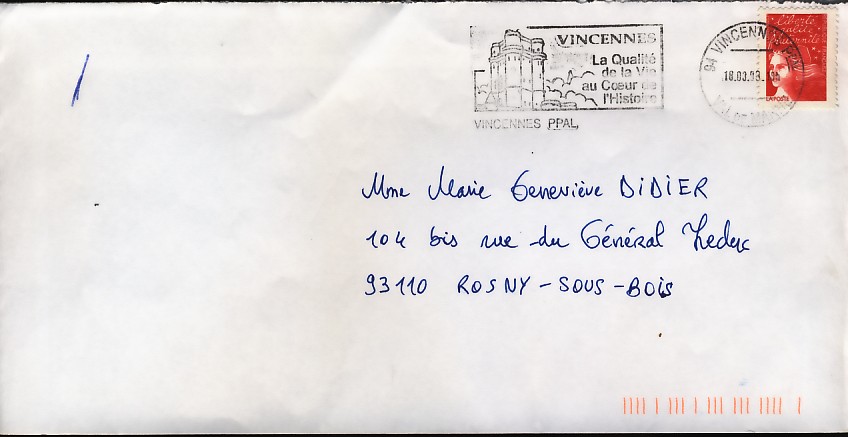 VINCENNES
La Qualité
de la Vie
au Cœur de
l'Histoire
VINCENNES PPAL
94 VINCENNES
18.03.98
LA POSTE
Mme Marie Geneviève DIDIER
104 bis rue du Général Leduc
93110 ROSNY-SOUS-BOIS